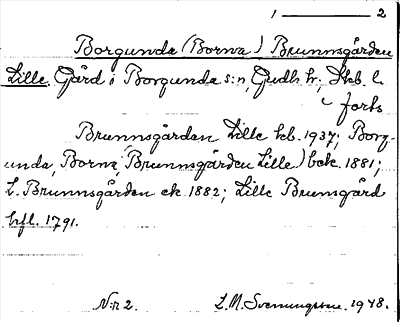 1 ——— 2
Borgunda (Borna) Brunnsgården
Lille. Gård i Borgunda s:n, Gudh. hr. Skb. l.
forts
Brunnsgården, Lille kb. 1937; Borg-
unda, Borna, Brunnsgården Lille) bek. 1881;
L. Brunnsgården ek. 1882; Lille Brunsgård
hfl. 1791.
N:r 2. L. M. Svenungsson. 1948.